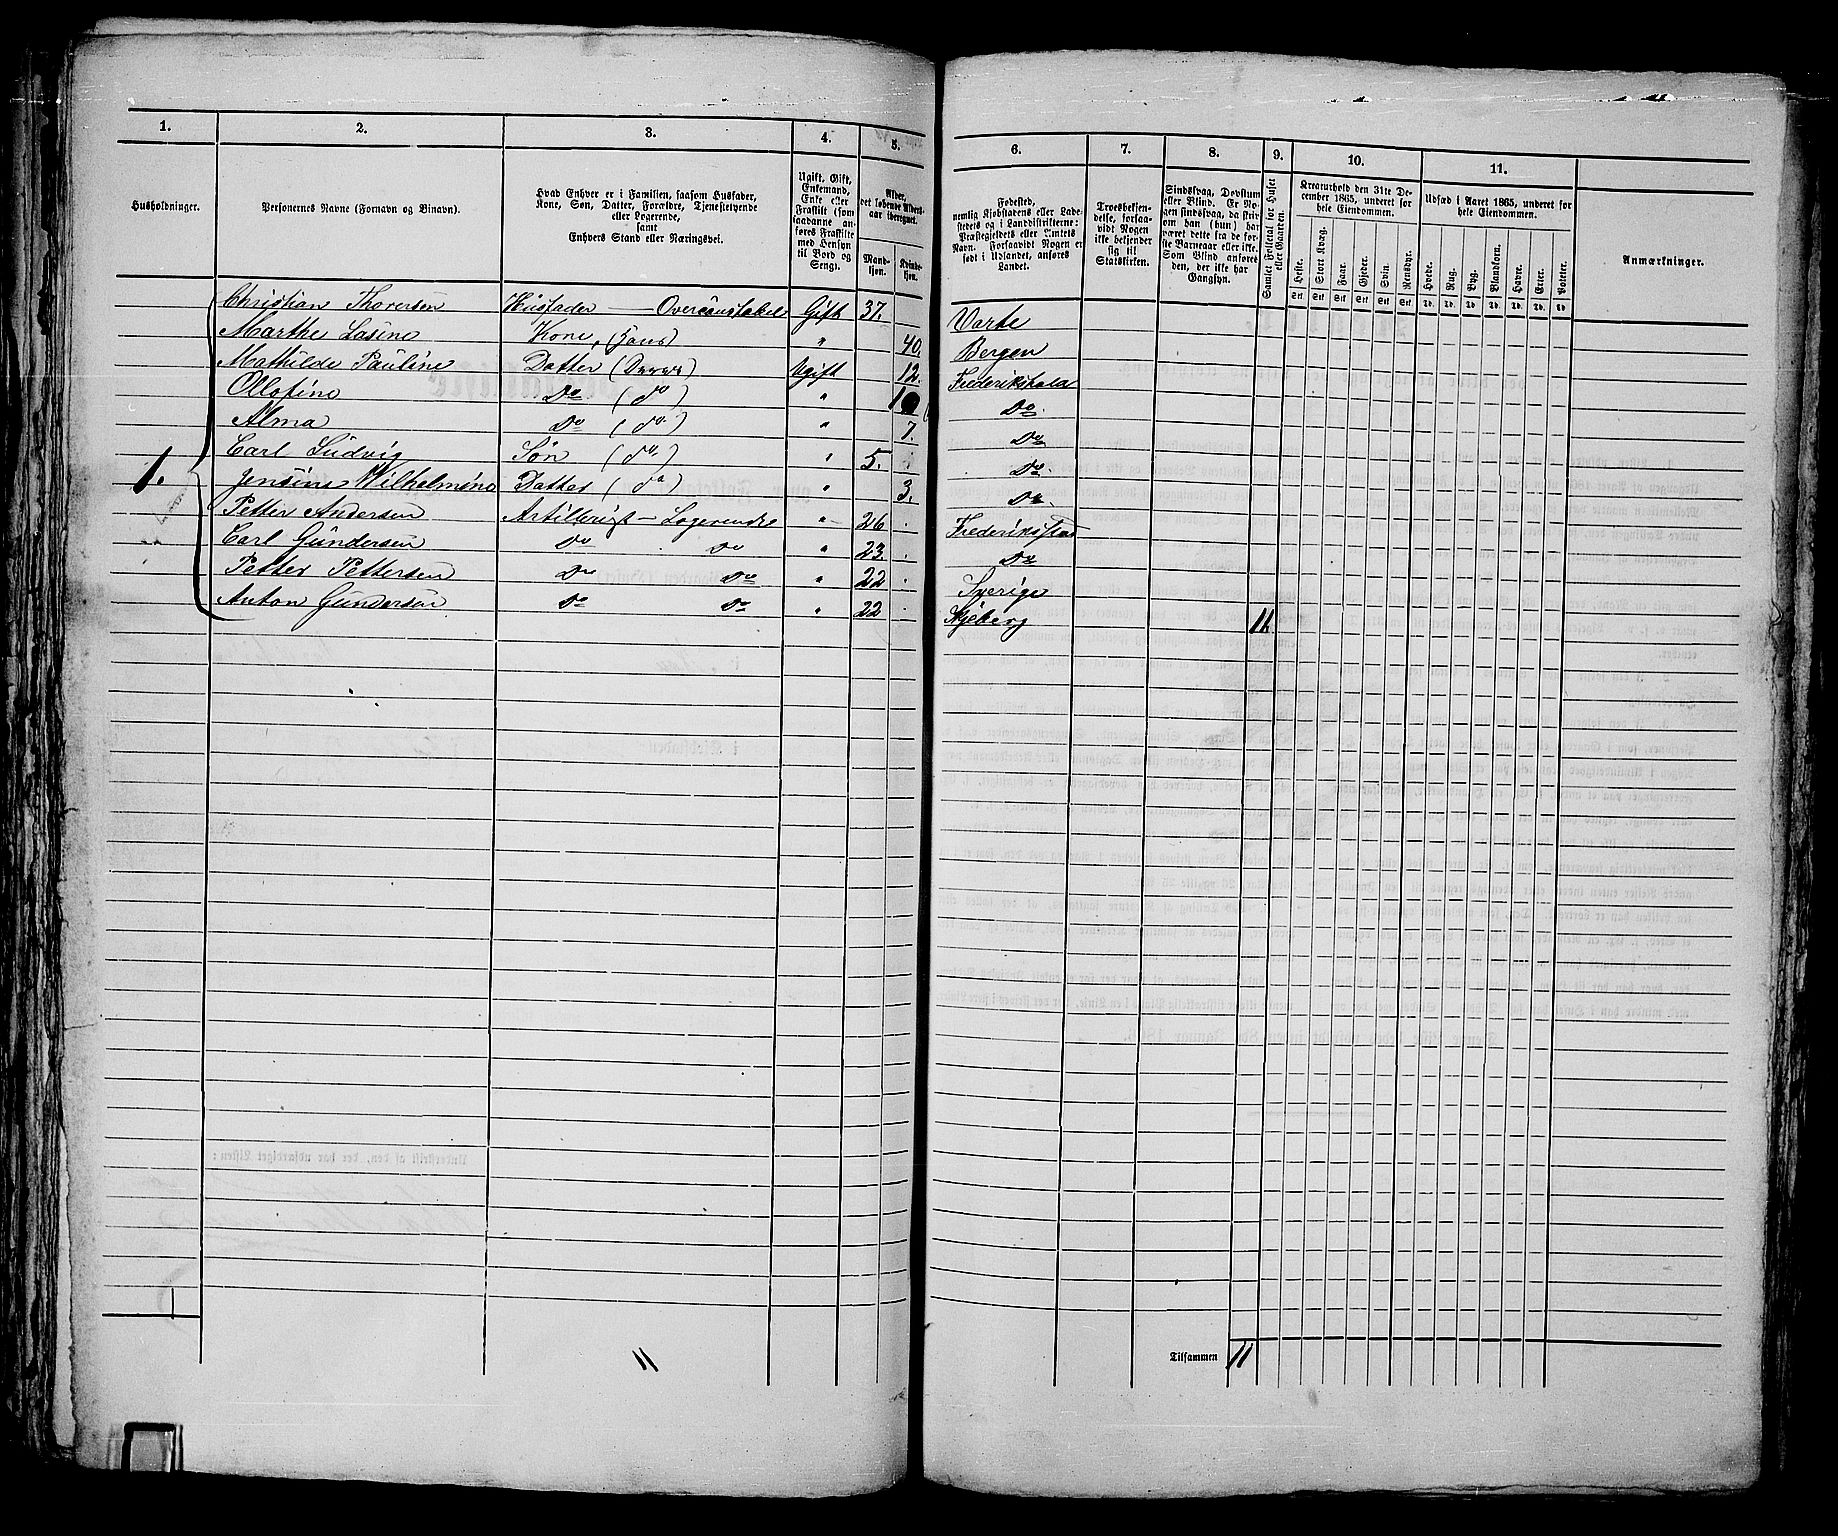 1. 2. 3. 4. 5. 6. 7. 8. 9. 10. 11.
Husholdninger.
Personernes Navne (Fornavn og Binavn).
Hvad Enhver er i Familien, saasom Husfader,
Kone, Søn, Datter, Forældre, Tjenestetyende
eller Logerende,
samt
Enhvers Stand eller Næringsvei.
Ugift, Gift,
Enkemand,
Enke eller
Fraskilt (som
saadanne an-
føres Fraskilte
med Hensyn
til Bord og
Seng).
Alder,
det løbende Alders-
aar iberegnet.
Mand-
kjøn.
Kvinde-
kjøn.
Fødested,
nemlig Kjøbstadens eller Lade-
stedets og i Landdistrikterne:
Præstegjeldets eller Amtets
Navn. Forsaavidt Nogen er
født i Udlandet, anføres
Landet.
Troesbekjen-
delse, forsaa-
vidt Nogen
ikke bekjender
sig til
Statskirken.
Sindssvag, Døvstum
eller Blind. Er No-
gen sindssvag, da skriv
om han (hun) har
været dette fra de før-
ste Barneaar eller ikke.
Som Blind anføres
den, der ikke har
Gangsyn.
Samlet Folketal for Huset
eller Gaarden.
Kreaturhold den 31te De-
cember 1865, underet for
hele Eiendommen.
Heste. Stort Kvæg. Faar. Gjeder. Svin. Rensdyr.
Stk Stk Stk Stk Stk Stk
Udsæd i Aaret 1865, underet for
hele Eiendommen.
Hvede. Rug. Byg. Blandkorn. Havre. Erter. Poteter.
Td. Td. Td. Td. Td. Td. Td
Anmærkninger.
Christian Thoresen Husfader — Overconstabel Gift 37. Varte
Marthe Lasine Kone, (Hans) " 40. Bergen
Mathilde Pauline Datter ( ) Ugift 12. Frederikshald
Olofine Do (do) " Do
Alma Do (do.) " 7. Do
Carl Ludvig Søn (do.) " 5. Do
1. Jensine Wilhelmine Datter (do) " 3. Do
Petter Andersen Artillerist — Logerende " 26 Frederiksstad
Carl Gundersen Do Do " 23. Do
Petter Pettersen Do Do " 22 Sverige
Anton Gundersen Do Do " 22 Skjeberg 11.
1
11 Tilsammen 11